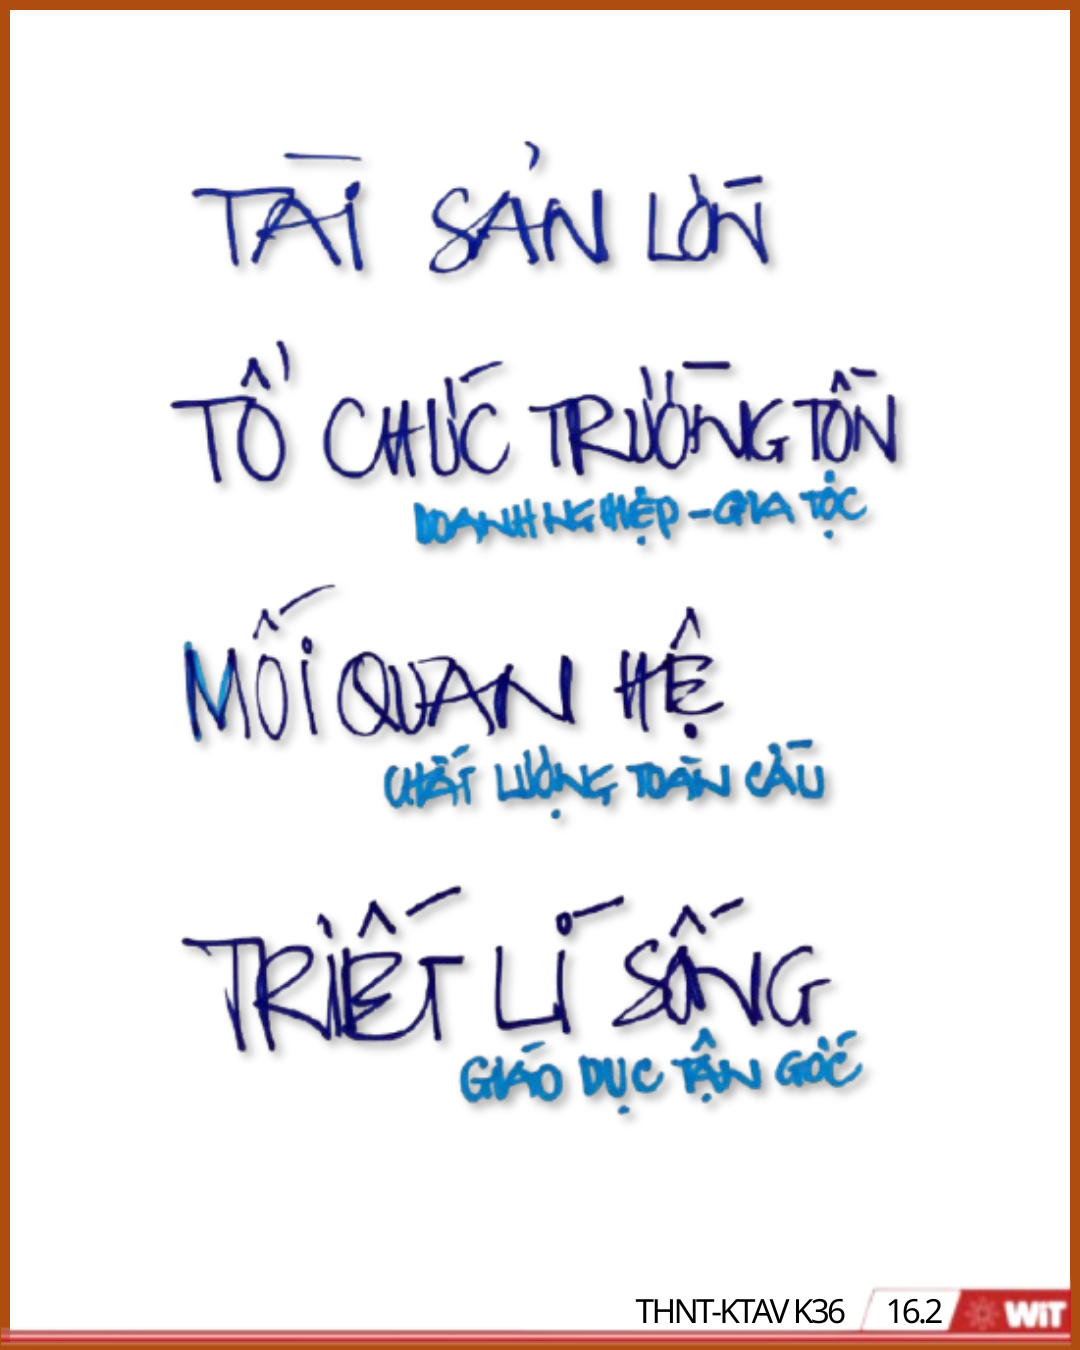 TÀI SẢN LỚN
TỔ CHỨC TRƯỜNG TỒN
DOANH NGHIỆP - GIA TỘC
MỐI QUAN HỆ
CHẤT LƯỢNG TOÀN CẦU
TRIẾT LÍ SỐNG
GIÁO DỤC TẬN GỐC
THNT-KTAV K36 16.2 WiT